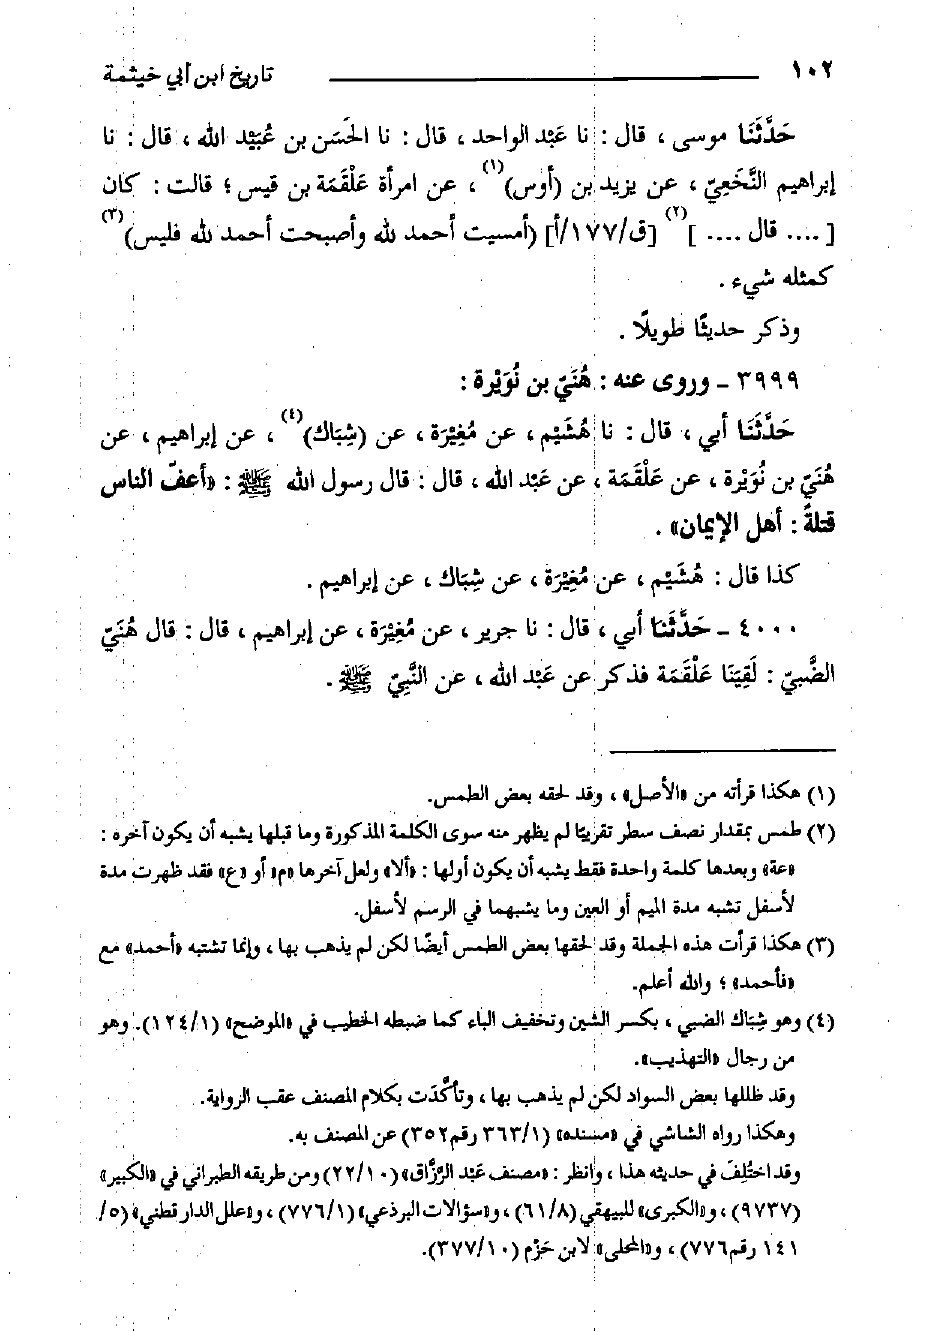 ١٠٢ تاريخ ابن أبي خيثمة
حَدَّثَنَا موسى ، قال : نا عَبْد الواحد ، قال : نا الحَسَن بن عُبَيْد الله ، قال : نا
إبراهيم النَّخَعِيّ ، عن يزيد بن (أوس)(١) ، عن امرأة عَلْقَمَة بن قيس ؛ قالت : كان
[ .... قال .... ](٢) [ق/١٧٧/أ] (أمسيت أحمد لله وأصبحت أحمد لله فليس)(٣)
كمثله شيء .
وذكر حديثًا طويلًا .
٣٩٩٩ ـ وروى عنه : هُنَيّ بن نُوَيْرة :
حَدَّثَنَا أبي ، قال : نا هُشَيْم ، عن مُغِيْرَة ، عن (شِبَاك)(٤) ، عن إبراهيم ، عن
هُنَيّ بن نُوَيْرة ، عن عَلْقَمَة ، عن عَبْد الله ، قال : قال رسول الله ﷺ : «أعفّ الناس
قتلةً : أهل الإيمان» .
كذا قال : هُشَيْم ، عن مُغِيْرَة ، عن شِبَاك ، عن إبراهيم .
٤٠٠٠ ـ حَدَّثَنَا أبي ، قال : نا جرير ، عن مُغِيْرَة ، عن إبراهيم ، قال : قال هُنَيّ
الضَّبيّ : لَقِيَنَا عَلْقَمَة فذكر عن عَبْد الله ، عن النَّبيّ ﷺ .
(١) هكذا قرأته من «الأصل» ، وقد لحقه بعض الطمس.
(٢) طمس بمقدار نصف سطر تقريبًا لم يظهر منه سوى الكلمة المذكورة وما قبلها يشبه أن يكون آخره :
«عة» وبعدها كلمة واحدة فقط يشبه أن يكون أولها : «ألا» ولعل آخرها «م» أو «ع» فقد ظهرت مدة
لأسفل تشبه مدة الميم أو العين وما يشبهما في الرسم لأسفل.
(٣) هكذا قرأت هذه الجملة وقد لحقها بعض الطمس أيضًا لكن لم يذهب بها ، وإنما تشتبه «أحمد» مع
«فأحمد» ؛ والله أعلم.
(٤) وهو شِبَاك الضبي ، بكسر الشين وتخفيف الباء كما ضبطه الخطيب في «الموضح» (١/‏١٢٤). وهو
من رجال «التهذيب».
وقد ظللها بعض السواد لكن لم يذهب بها ، وتأكَّدَت بكلام المصنف عقب الرواية.
وهكذا رواه الشاشي في «مسنده» (١/‏٣٦٣ رقم٣٥٢) عن المصنف به.
وقد اختُلِفَ في حديثه هذا ، وانظر : «مصنف عَبْد الرَّزَّاق» (١٠/‏٢٢) ومن طريقه الطبراني في «الكبير»
(٩٧٣٧) ، و«الكبرى» للبيهقي (٨/‏٦١) ، و«سؤالات البرذعي» (١/‏٧٧٦) ، و«علل الدارقطني» (٥/
١٤١ رقم٧٧٦) ، و«المحلى» لابن حَزْم (١٠/‏٣٧٧).